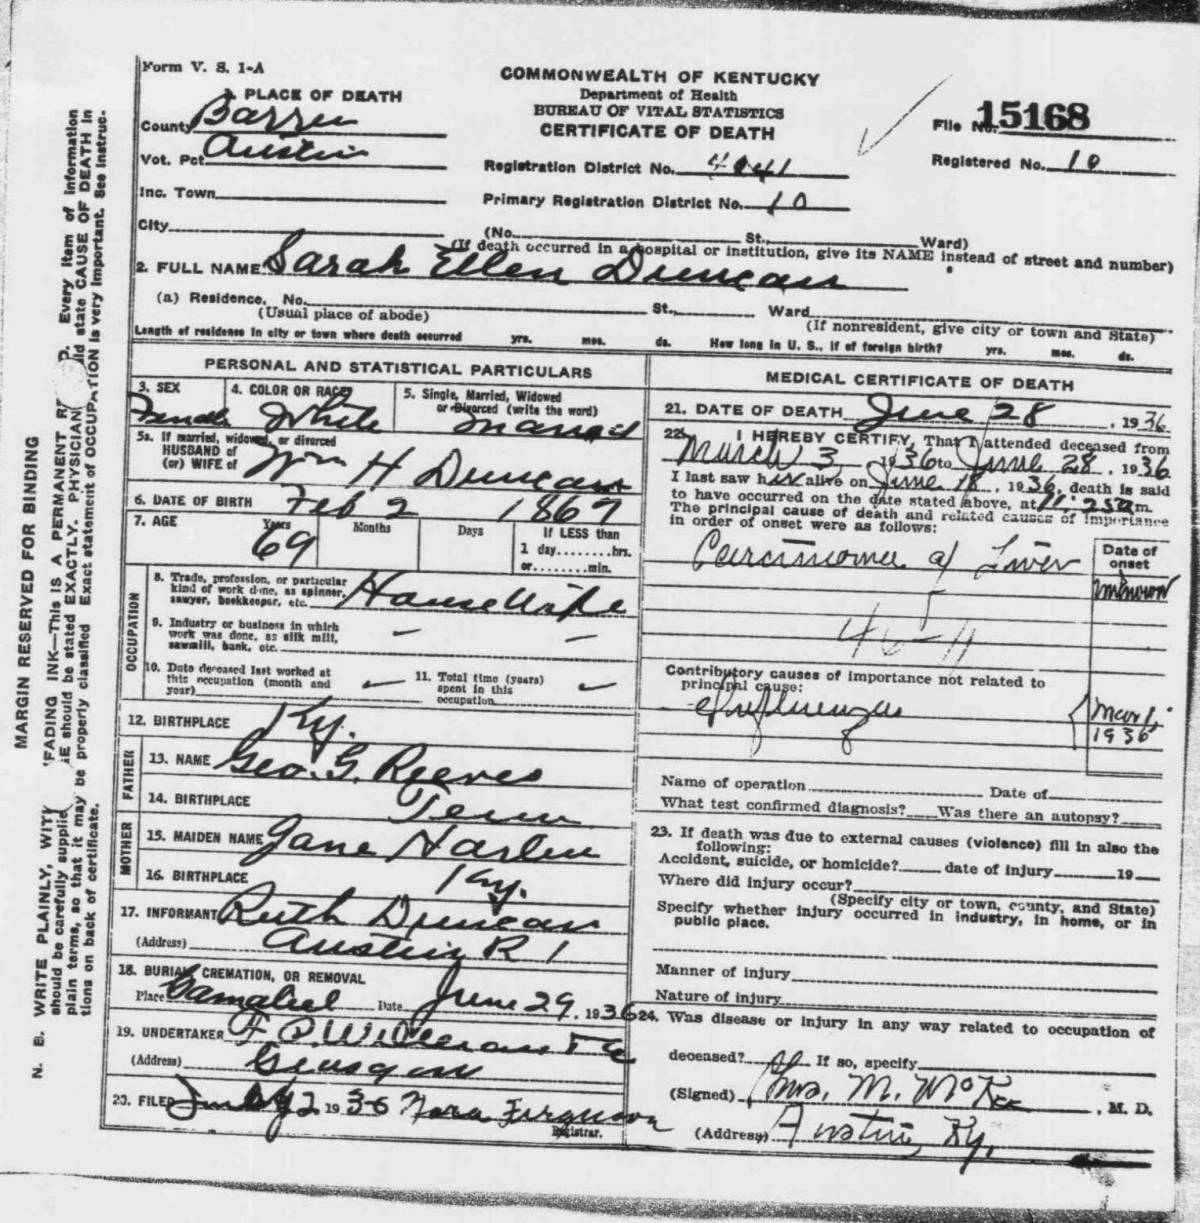 Form V. S. 1-A
COMMONWEALTH OF KENTUCKY
Department of Health
BUREAU OF VITAL STATISTICS
CERTIFICATE OF DEATH
File No. 15168
Registered No. 10
1. PLACE OF DEATH
County Barren
Vot. Pct. Austin
Inc. Town
City
Registration District No. 4041
Primary Registration District No. 10
(No. St., Ward)
(If death occurred in a hospital or institution, give its NAME instead of street and number)
2. FULL NAME Sarah Ellen Duncan
(a) Residence. No. St., Ward
(Usual place of abode) (If nonresident, give city or town and State)
Length of residence in city or town where death occurred yrs. mos. ds. How long in U. S., if of foreign birth? yrs. mos. ds.
PERSONAL AND STATISTICAL PARTICULARS
3. SEX Female
4. COLOR OR RACE White
5. Single, Married, Widowed
or Divorced (write the word)
Married
5a. If married, widowed, or divorced
HUSBAND of
(or) WIFE of Wm H Duncan
6. DATE OF BIRTH Feb 2 1867
7. AGE Years Months Days If LESS than
69 1 day........hrs.
or........min.
OCCUPATION
8. Trade, profession, or particular
kind of work done, as spinner,
sawyer, bookkeeper, etc. House Wife
9. Industry or business in which
work was done, as silk mill,
sawmill, bank, etc. — —
10. Date deceased last worked at
this occupation (month and
year)
11. Total time (years)
spent in this
occupation
12. BIRTHPLACE Ky.
FATHER
13. NAME Geo. G. Reeves
14. BIRTHPLACE Tenn
MOTHER
15. MAIDEN NAME Jane Harlin
16. BIRTHPLACE Ky.
17. INFORMANT Ruth Duncan
(Address) Austin R 1
18. BURIAL, CREMATION, OR REMOVAL
Place Gamaliel Date June 29, 1936
19. UNDERTAKER
(Address) Glasgow
20. FILED 1936 Nora Ferguson
Registrar.
MEDICAL CERTIFICATE OF DEATH
21. DATE OF DEATH June 28, 1936
22. I HEREBY CERTIFY, That I attended deceased from
March 3 1936 to June 28, 1936
I last saw her alive on June 18, 1936, death is said
to have occurred on the date stated above, at 11:25 am.
The principal cause of death and related causes of importance
in order of onset were as follows:
Date of
onset
Carcinoma of Liver unknown
Contributory causes of importance not related to
principal cause:
Influenza Mar 1936
Name of operation Date of
What test confirmed diagnosis? Was there an autopsy?
23. If death was due to external causes (violence) fill in also the
following:
Accident, suicide, or homicide? date of injury 19
Where did injury occur?
(Specify city or town, county, and State)
Specify whether injury occurred in industry, in home, or in
public place.
Manner of injury
Nature of injury
24. Was disease or injury in any way related to occupation of
deceased? If so, specify
(Signed) M. McKee, M. D.
(Address) Austin, Ky.
MARGIN RESERVED FOR BINDING
N. B. WRITE PLAINLY, FADING INK—This IS A PERMANENT Every item of information
should be carefully supplied should be stated EXACTLY. PHYSICIAN state CAUSE OF DEATH in
plain terms, so that it may be properly classified Exact statement of OCCUPATION is very important. See instruc-
tions on back of certificate.